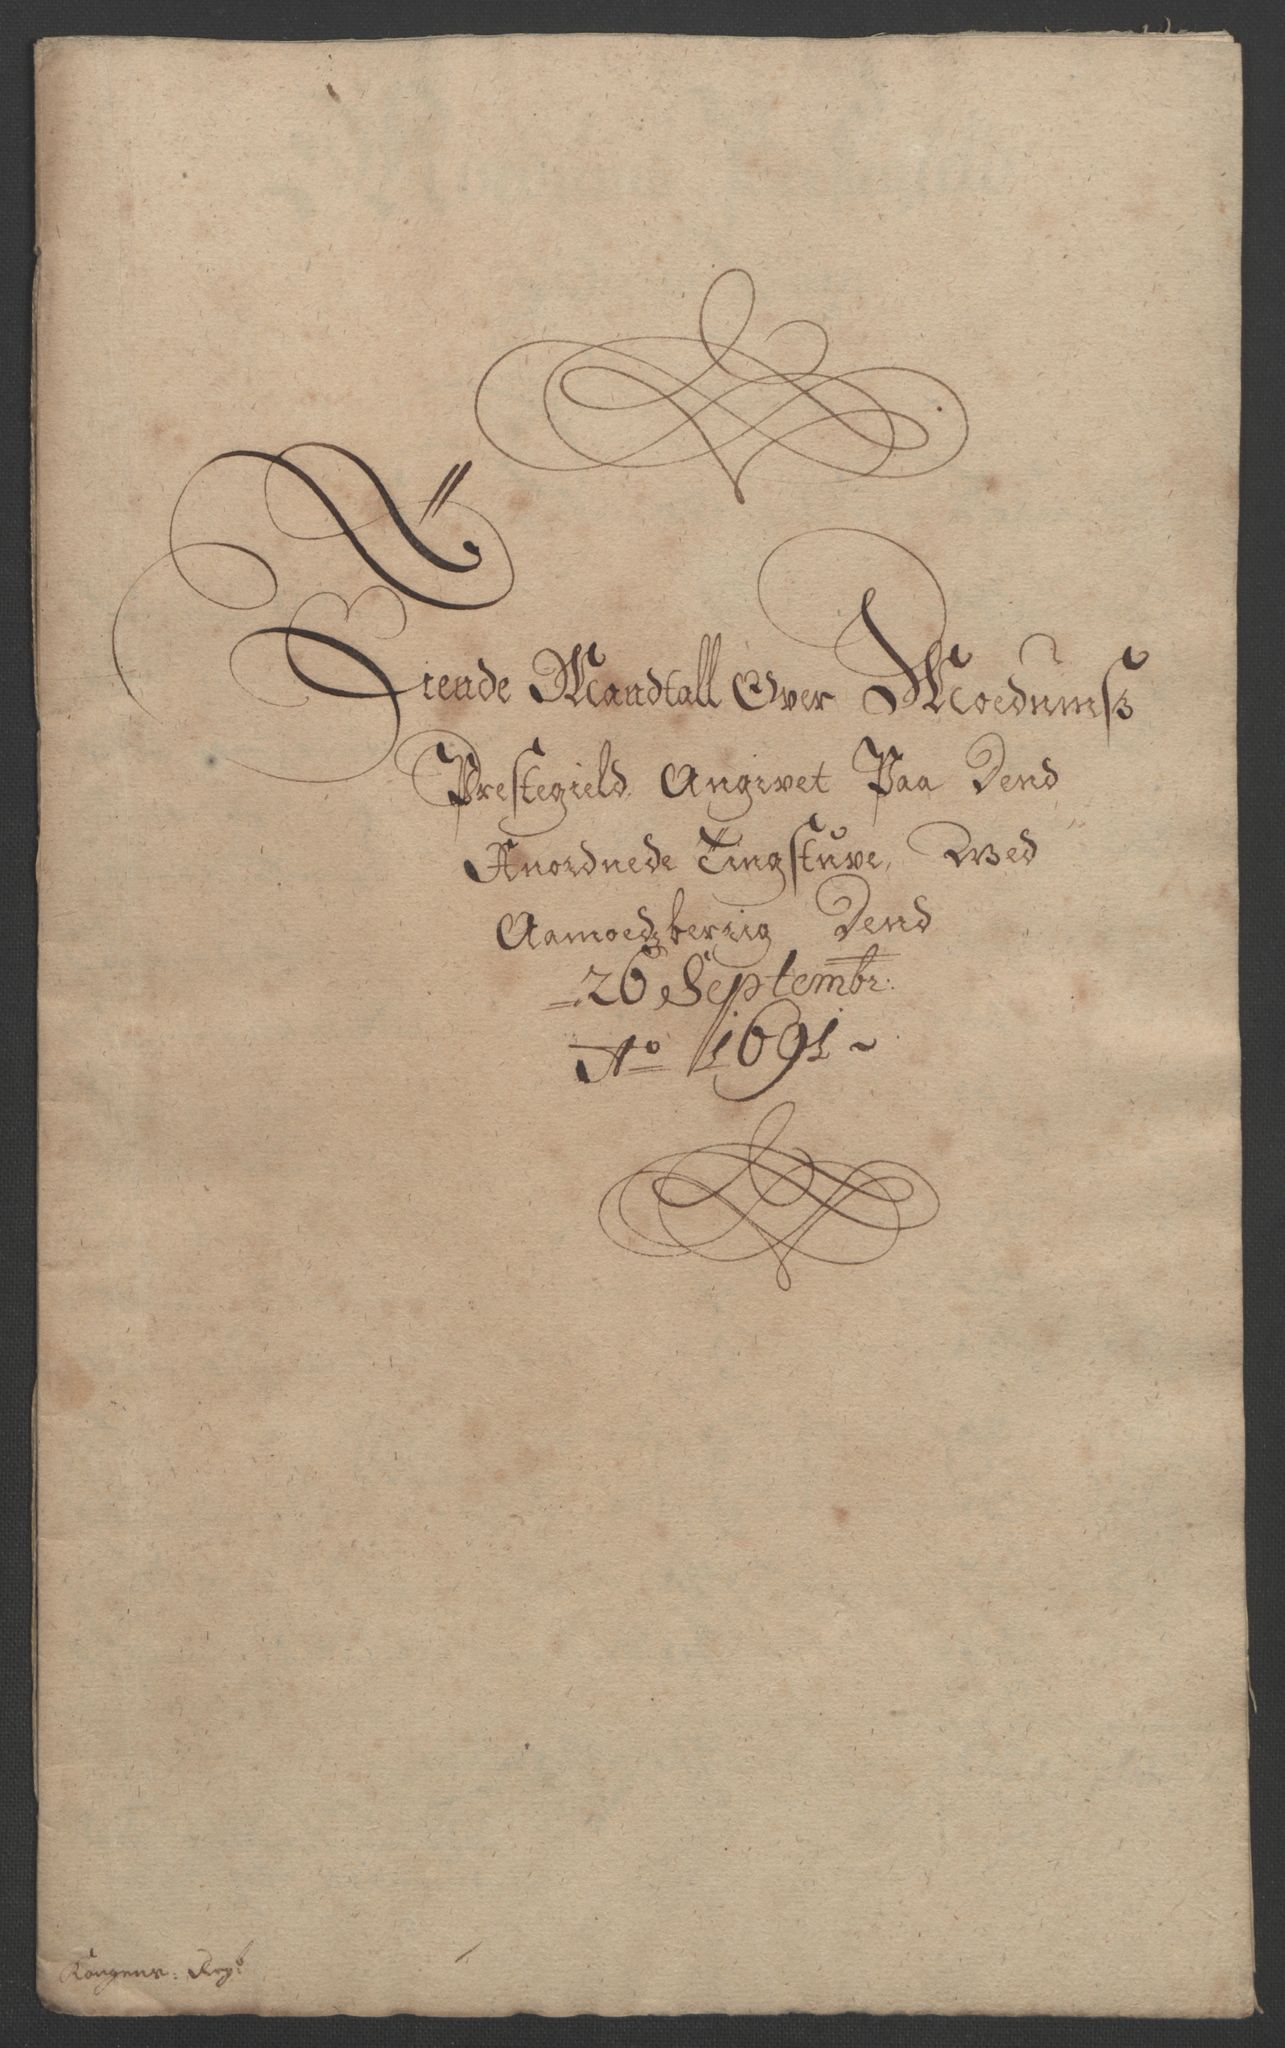 Tiende Mandtall Over Moedumß
Prestegield Angivet Paa Dend
Anordnede Tingstuve, Wed
Aamodzberrig Dend
26 Septembr:
Ao 1691
Kongens